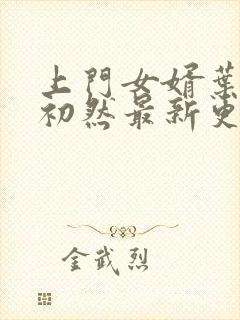 上門女婿葉
初然最新更
金武烈